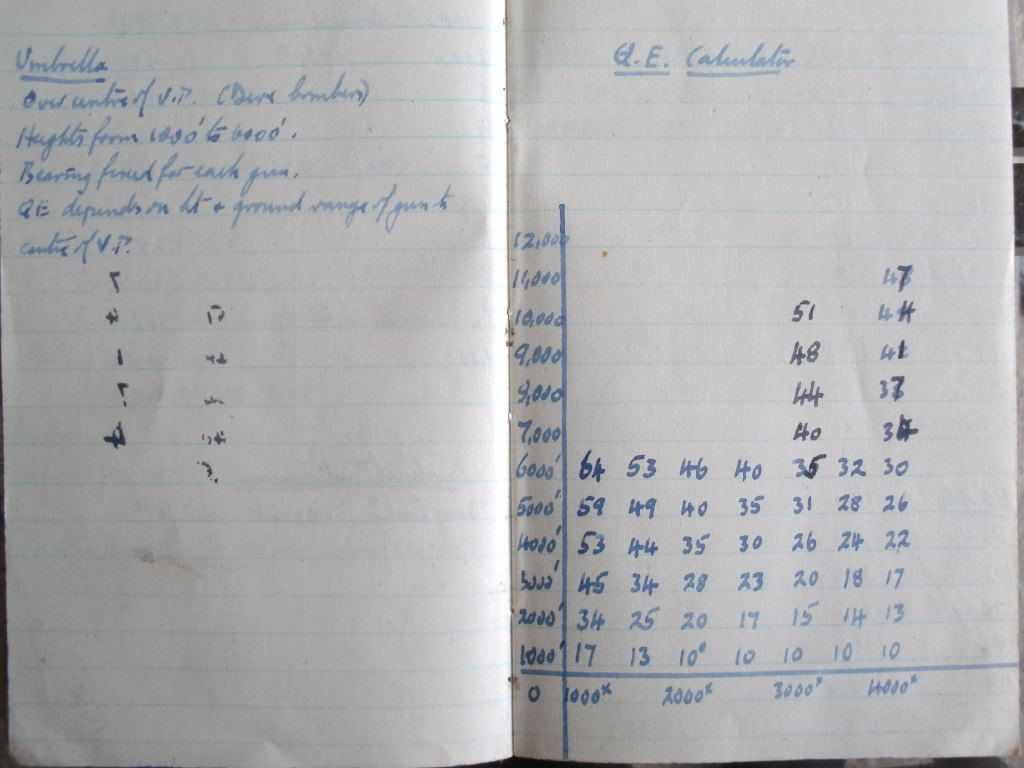 Umbrella
Over centre of V.P. (Dive bombers)
Heights from 1000' to 6000'.
Bearing fixed for each gun.
QE depends on ht + ground range of gun to
centre of V.P.
Q.E. Calculator
12,000
11,000 47
10,000 51 44
9,000 48 41
8,000 44 37
7,000 40 34
6000' 64 53 46 40 35 32 30
5000' 59 49 40 35 31 28 26
4000' 53 44 35 30 26 24 22
3000' 45 34 28 23 20 18 17
2000' 34 25 20 17 15 14 13
1000' 17 13 10° 10 10 10 10
0 1000x 2000x 3000x 4000x